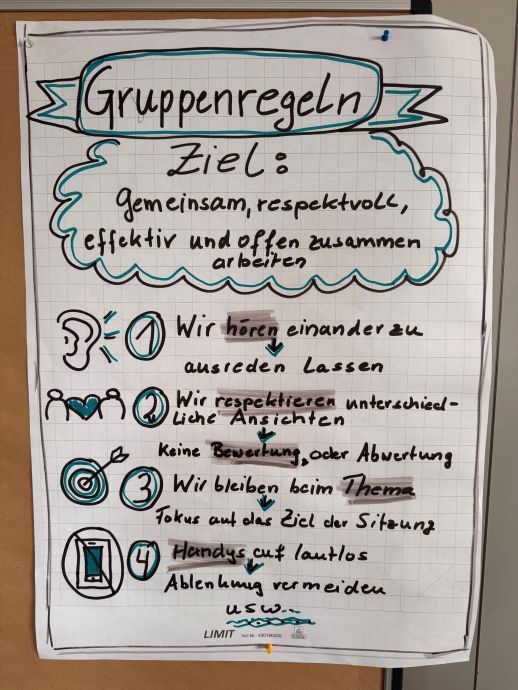 Gruppenregeln
Ziel:
Gemeinsam, respektvoll,
effektiv und offen zusammen
arbeiten
1 Wir hören einander zu
ausreden lassen
2 Wir respektieren unterschied-
liche Ansichten
Keine Bewertung, oder Abwertung
3 Wir bleiben beim Thema
Fokus auf das Ziel der Sitzung
4 Handys auf lautlos
Ablenkung vermeiden
usw...
LIMIT